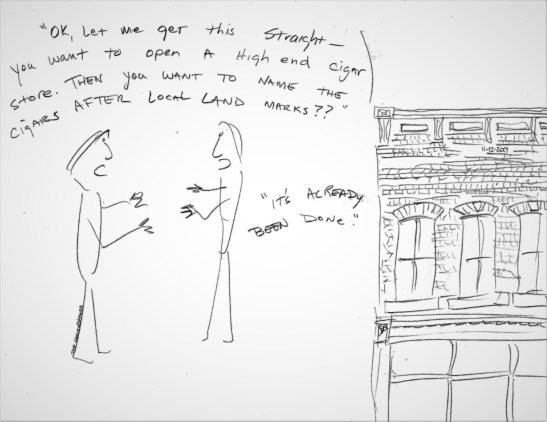 "OK, Let me get this Straight—
you want to open A High end cigar
store. THEN YOU WANT TO NAME THE
CIGARS AFTER LOCAL LAND MARKS??"
"IT'S ALREADY
BEEN DONE."
11-12-2009